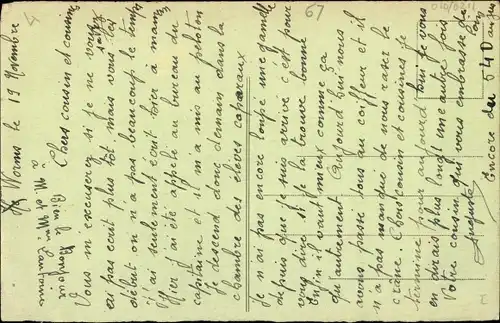 Worms le 19 Novembre
Chers cousin et cousine
Vous m'excuserez si je ne vous
ai pas écrit plus tôt mais vous savez les
début on n'a pas beaucoup le temps
j'ai seulement écrit hier à maman
Hier j'ai été appelé au bureau du
capitaine et il m'a mis au peloton
je descend donc demain dans la
chambre des élèves caporaux
je n'ai pas encore loupé une gamelle
depuis que je suis arrivé c'est pour
vous dire si je la trouve bonne
Enfin il vaut mieux comme ça
qu'autrement Aujourd'hui nous
avons passé tous au coiffeur et il
n'a pas manqué de nous raser le
crâne Chers cousin et cousines je
termine pour aujourd'hui je vous
en dirais plus long Une autre fois
Votre cousin qui vous embrasse
Auguste
Encore du 540 au jus
Bien le Bonjour
à M et Mme
67